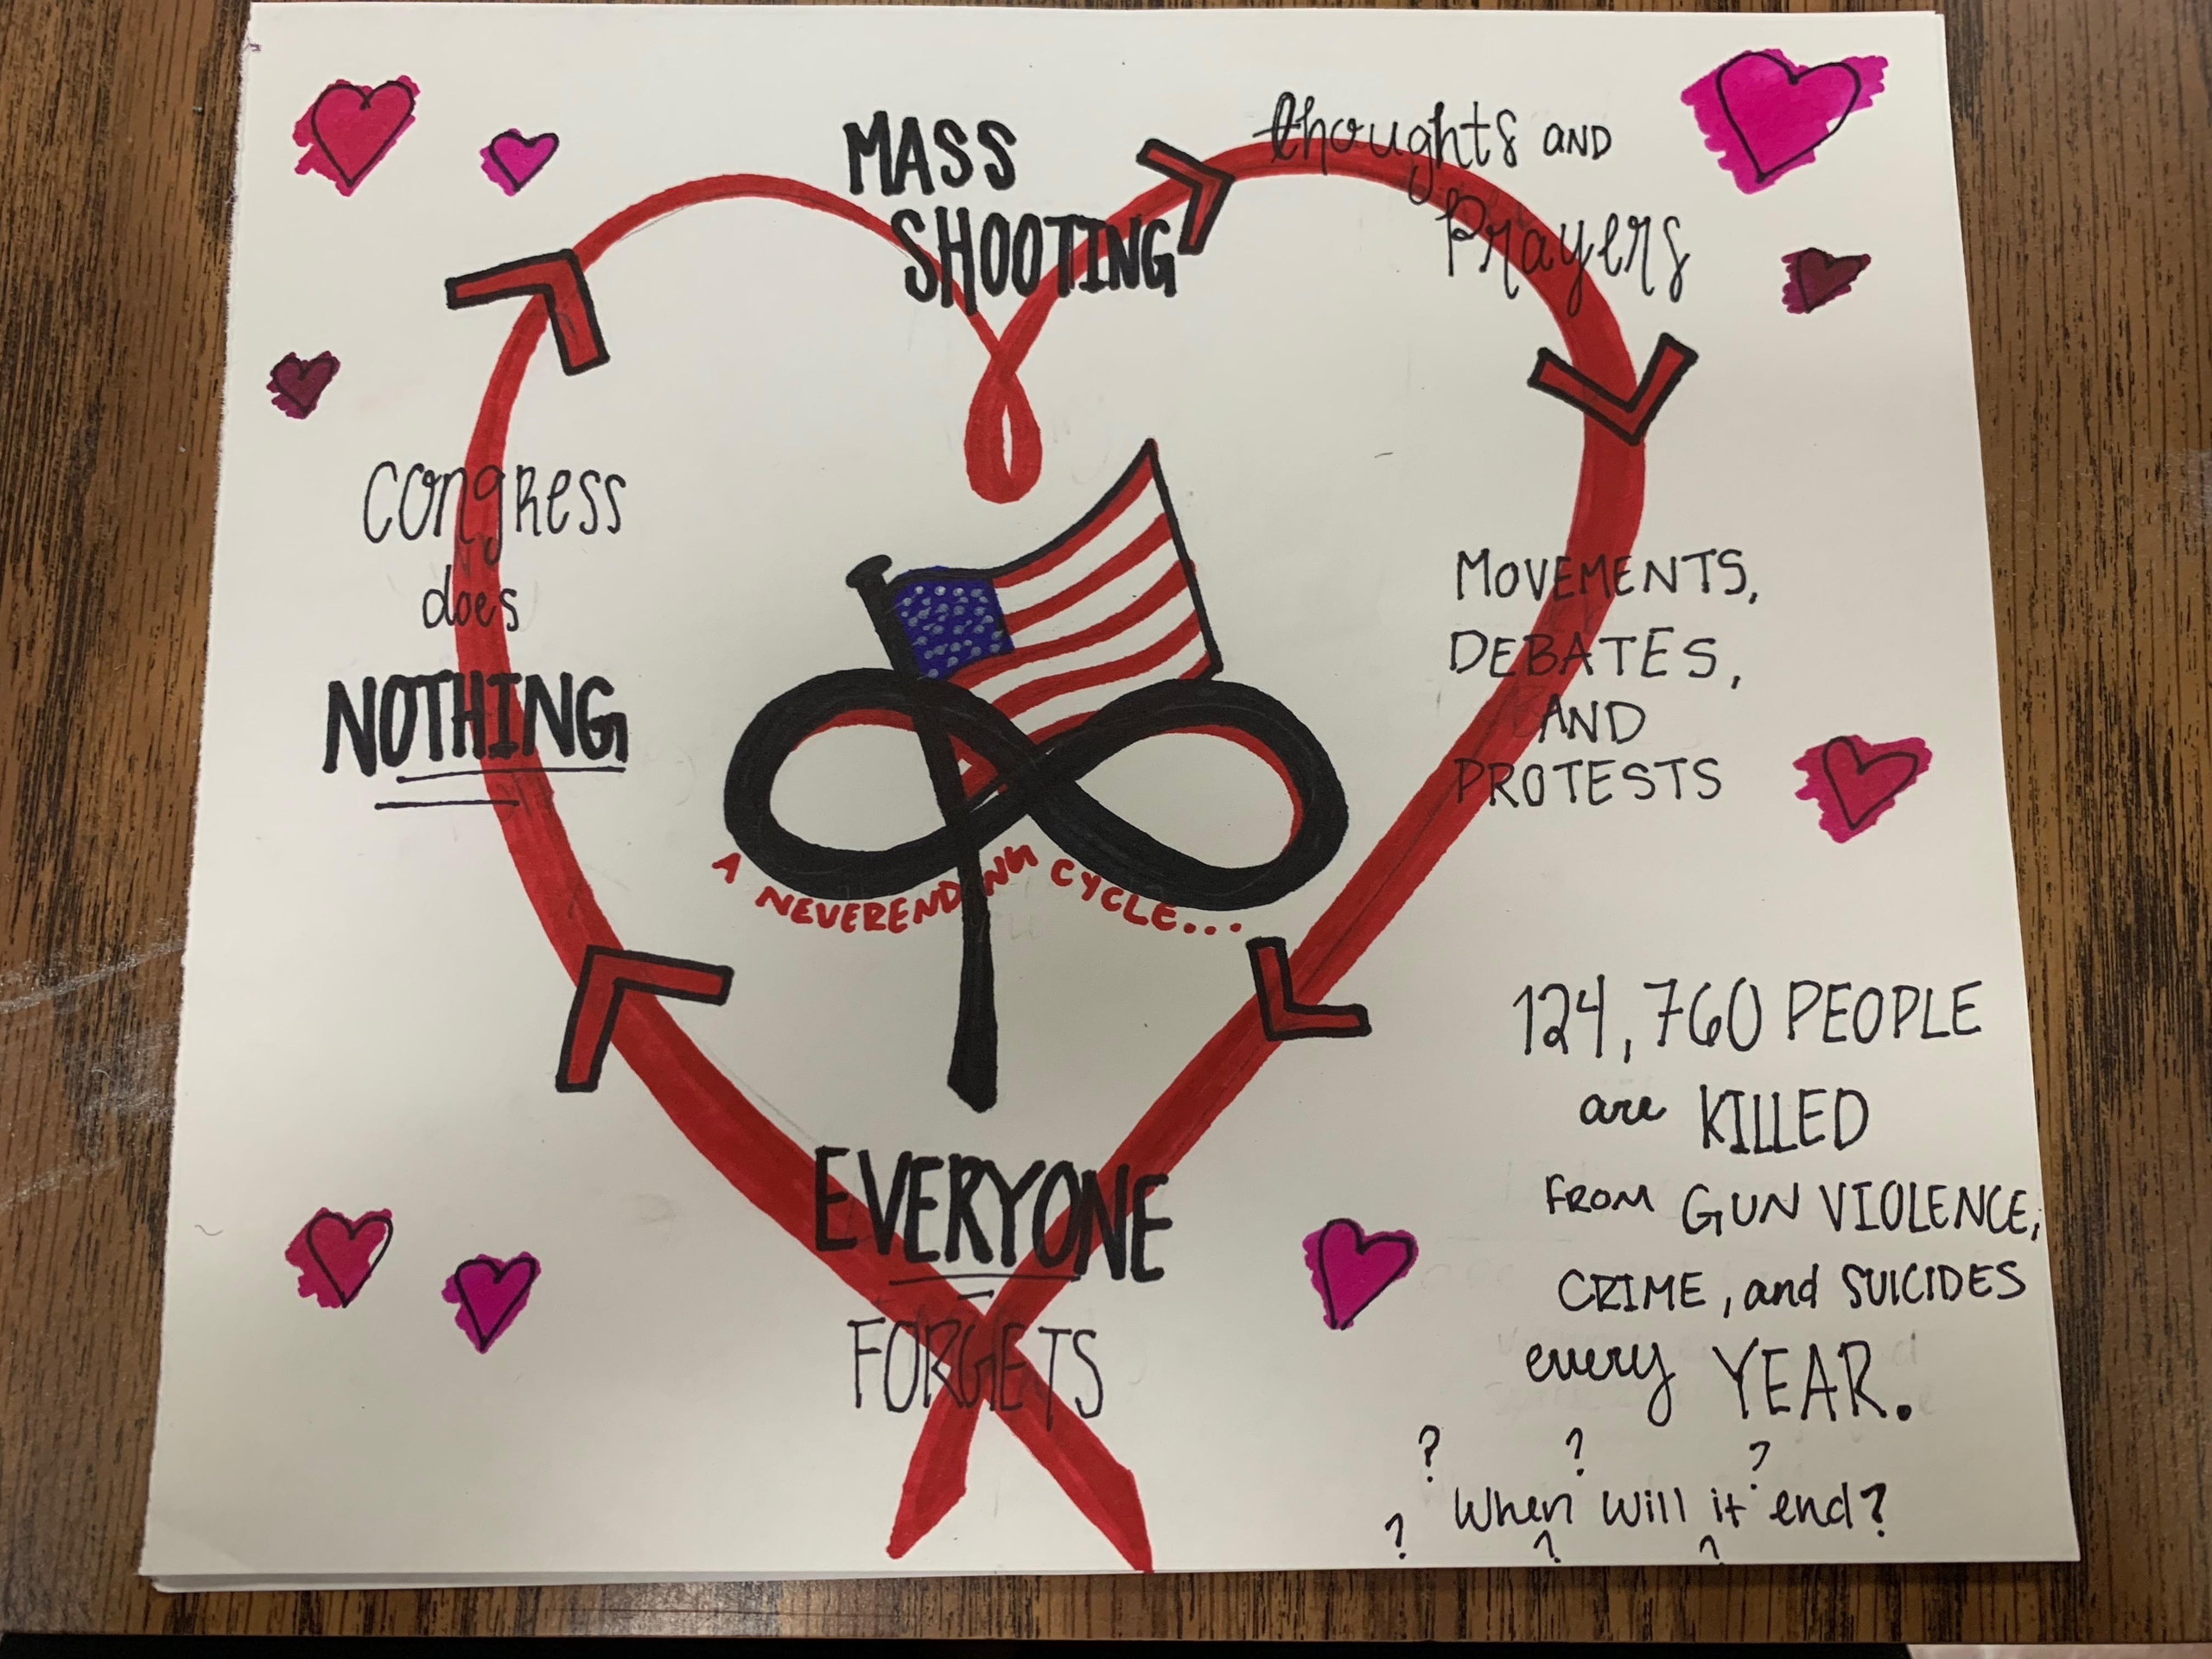 MASS
SHOOTING
thoughts AND
Prayers
MOVEMENTS,
DEBATES,
AND
PROTESTS
EVERYONE
FORGETS
Congress
does
NOTHING
A NEVERENDING CYCLE...
124,760 PEOPLE
are KILLED
FROM GUN VIOLENCE,
CRIME, and SUICIDES
every YEAR.
? ? ?
When will it end?
? ? ?